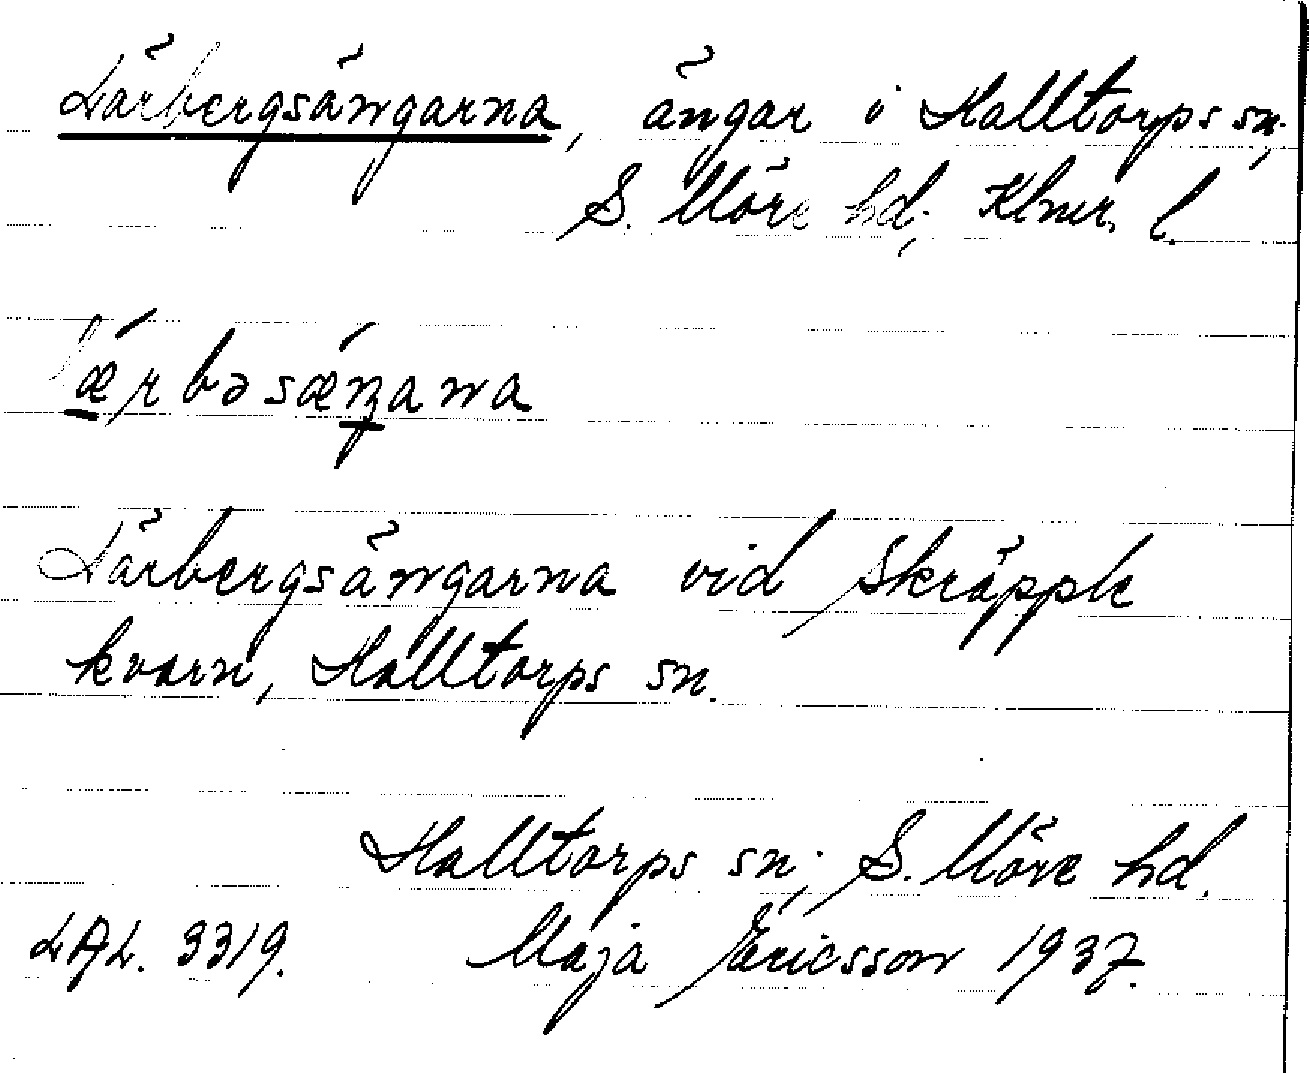 Lärbergsängarna, ängar i Halltorps sn,
S. Möre hd, Klmr. l.
lǽrbəsǽŋana
Lärbergsängarna vid Skräpple
kvarn, Halltorps sn.
Halltorps sn, S. Möre hd.
LAL. 3319. Maja Ericsson 1937.